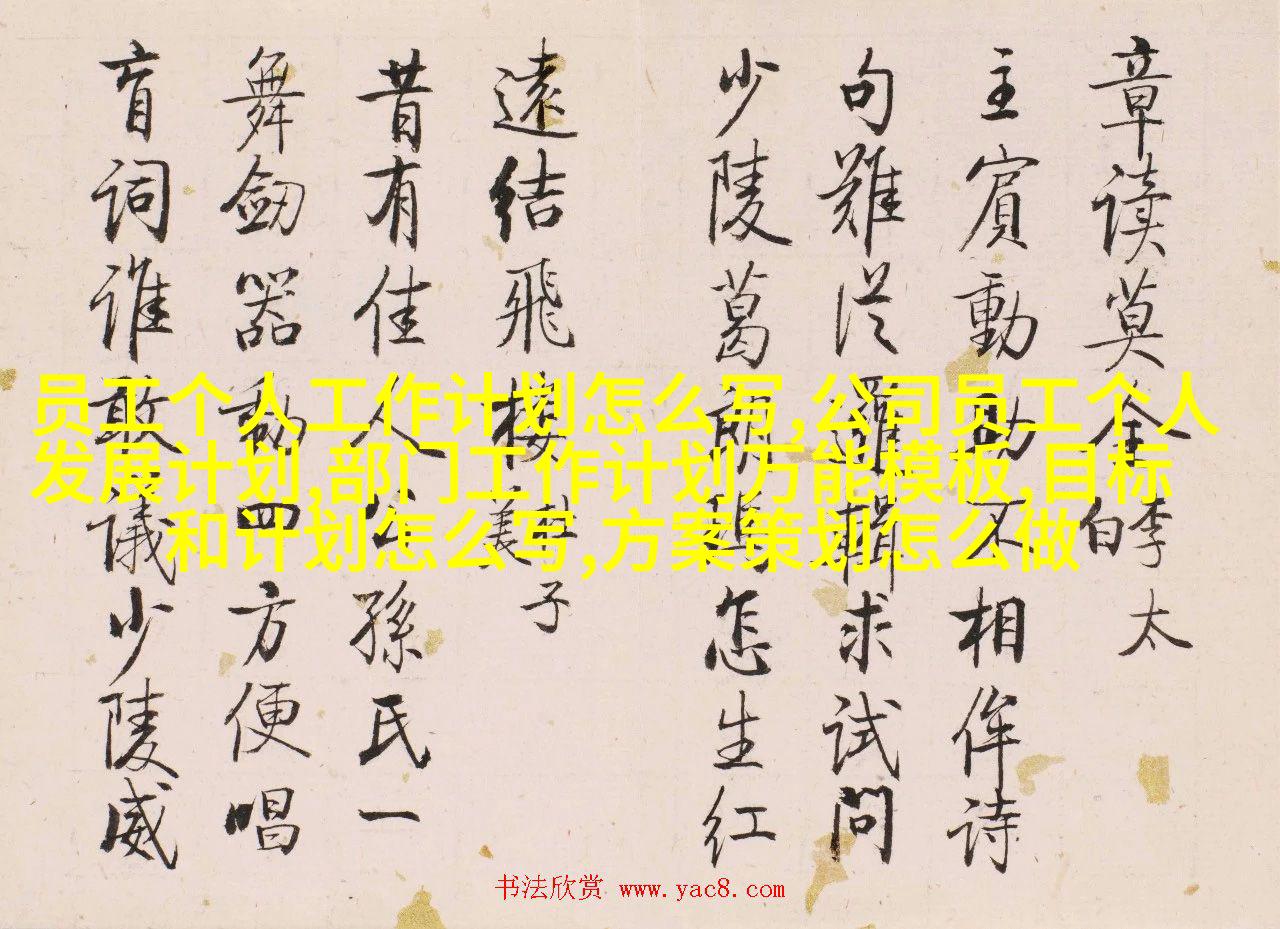 章读莫全 李太白
主賓動勸不相侔诗
句難從羅輯求试問
少陵葛
怎生红
遠结飛樓美
子
昔有佳人公孫氏一
舞劒器動四方便唱
盲词谁敢议少陵威
员工个人工作计划怎么写,公司员工个人
发展计划,部门工作计划万能模板,目标
和计划怎么写,方案策划怎么做
书法欣赏 www.yac8.com